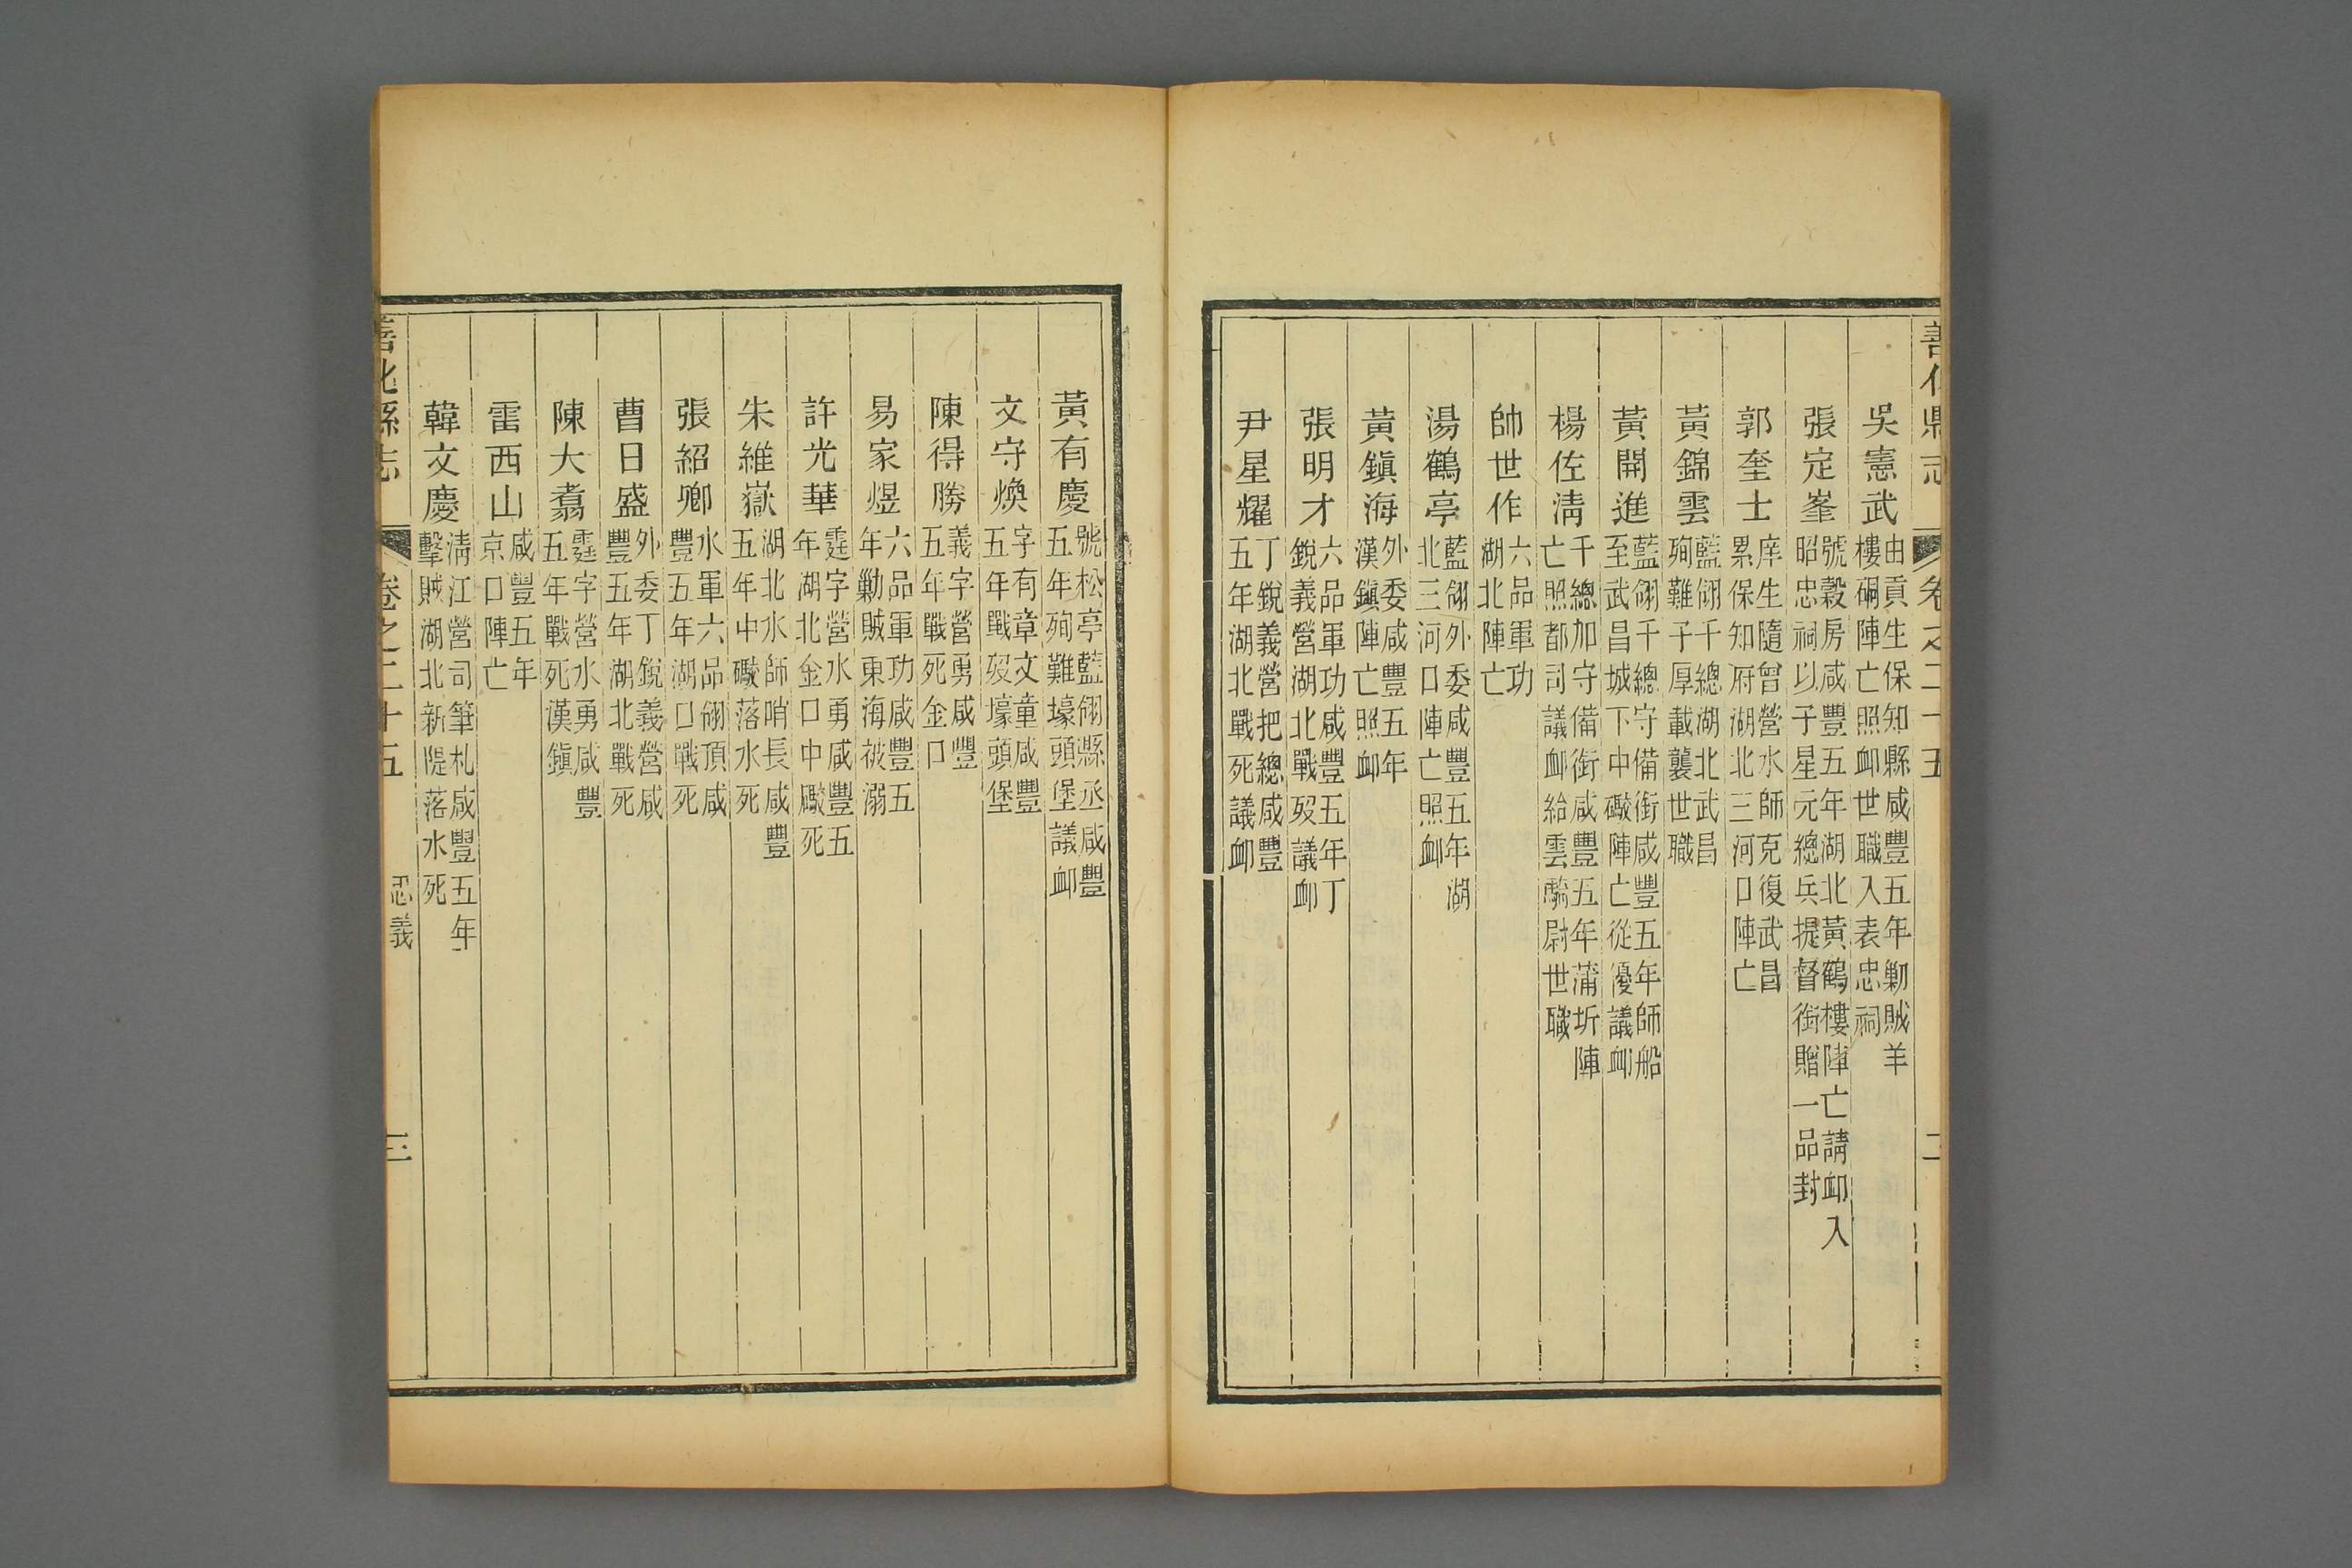 善化縣志 卷之二十五 二
吳憲武 由貢生保知縣咸豐五年勦賊羊樓峒陣亡照䘏世職入表忠祠
張定峯 號穀房咸豐五年湖北黃鶴樓陣亡請䘏入昭忠祠以子星元總兵提督銜贈一品封
郭奎士 庠生隨曾營水師克復武昌累保知府湖北三河口陣亡
黃錦雲 藍翎千總湖北武昌殉難子厚載襲世職
黃開進 藍翎千總守備銜咸豐五年師船至武昌城下中礮陣亡從優議䘏
楊佐淸 千總加守備銜咸豐五年蒲圻陣亡照都司議䘏給雲騎尉世職
帥世作 六品軍功湖北陣亡
湯鶴亭 藍翎外委咸豐五年湖北三河口陣亡照䘏
黃鎭海 外委咸豐五年漢鎭陣亡照䘏
張明才 六品軍功咸豐五年丁銳義營湖北戰歿議䘏
尹星耀 丁銳義營把總咸豐五年湖北戰死議䘏
黃有慶 號松亭藍翎縣丞咸豐五年殉難壕頭堡議䘏
文守煥 字有章文童咸豐五年戰歿壕頭堡
陳得勝 義字營勇咸豐五年戰死金口
易家煜 六品軍功咸豐五年勦賊東海被溺
許光華 霆字營水勇咸豐五年湖北金口中礮死
朱維嶽 湖北水師哨長咸豐五年中礮落水死
張紹卿 水軍六品翎頂咸豐五年湖口戰死
曹日盛 外委丁銳義營咸豐五年湖北戰死
陳大翥 霆字營水勇咸豐五年戰死漢鎭
雷西山 咸豐五年京口陣亡
韓文慶 淸江營司筆札咸豐五年擊賊湖北新隄落水死
善化縣志 卷之二十五 忠義 三